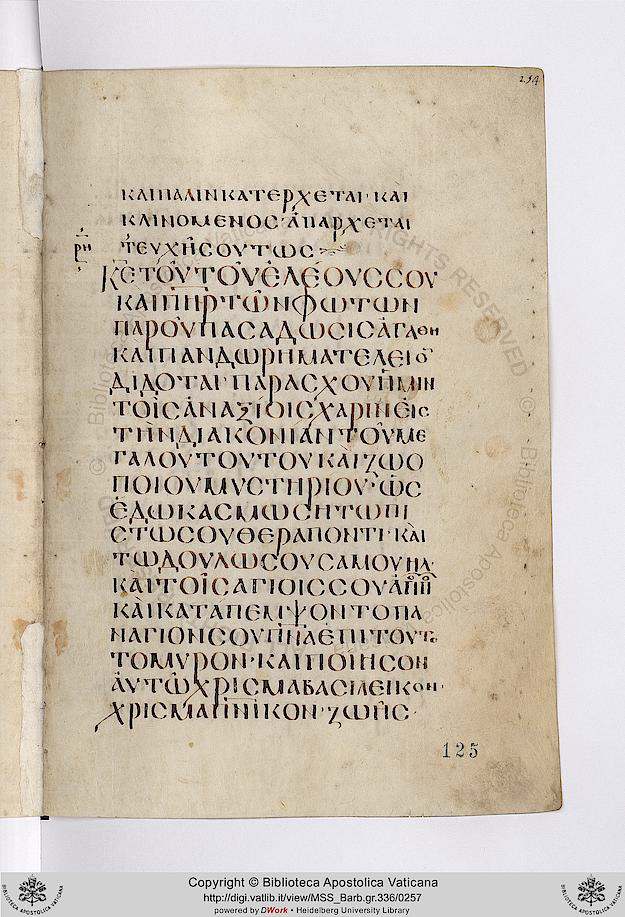 254
ΚΑΙ ΠΑΛΙΝ ΚΑΤΕΡΧΕΤΑΙ· ΚΑΙ
ΚΛΙΝΟΜΕΝΟΣ· ἈΠΑΡΧΕΤΑΙ
ΤΕΥΧΗΣ ΟΥΤΩΣ
ΚΕ ΤΟΥ ΤΟΥ ΕΛΕΟΥΣ ΣΟΥ
ΚΑΙ ΠΗΡ ΤΩΝ ΦΩΤΩΝ
ΠΑΡ ΟΥ ΠΑΣΑ ΔΩΣΙΣ ἈΓΑΘΗ
ΚΑΙ ΠΑΝ ΔΩΡΗΜΑ ΤΕΛΕΙΟ
ΔΙΔΟΤΑΙ· ΠΑΡΑΣΧΟΥ ΗΜΙΝ
ΤΟΙΣ ἈΝΑΞΙΟΙΣ ΧΑΡΙΝ ΕΙΣ
ΤΗΝ ΔΙΑΚΟΝΙΑΝ ΤΟΥ ΜΕ
ΓΑΛΟΥ ΤΟΥΤΟΥ ΚΑΙ ΖΩΟ
ΠΟΙΟΥ ΜΥΣΤΗΡΙΟΥ· ὩΣ
ΕΔΩΚΑΣ ΜΩΣΗ ΤΩ ΠΙ
ΣΤΩ ΣΟΥ ΘΕΡΑΠΟΝΤΙ· ΚΑΙ
ΤΩ ΔΟΥΛΩ ΣΟΥ ΣΑΜΟΥΗΛ·
ΚΑΙ ΤΟΙΣ ΑΓΙΟΙΣ ΣΟΥ ἈΠΟ
ΚΑΙ ΚΑΤΑΠΕΜΨΟΝ ΤΟ ΠΑ
ΝΑΓΙΟΝ ΣΟΥ ΠΝΑ ΕΠΙ ΤΟΥΤΟ
ΤΟ ΜΥΡΟΝ· ΚΑΙ ΠΟΙΗΣΟΝ
ΑΥΤΩ ΧΡΙΣΜΑ ΒΑΣΙΛΕΙΚΟΝ·
ΧΡΙΣΜΑ ΠΝΙΚΟΝ· ΖΩΗΣ·
125
Copyright © Biblioteca Apostolica Vaticana
http://digi.vatlib.it/view/MSS_Barb.gr.336/0257
powered by DWork • Heidelberg University Library